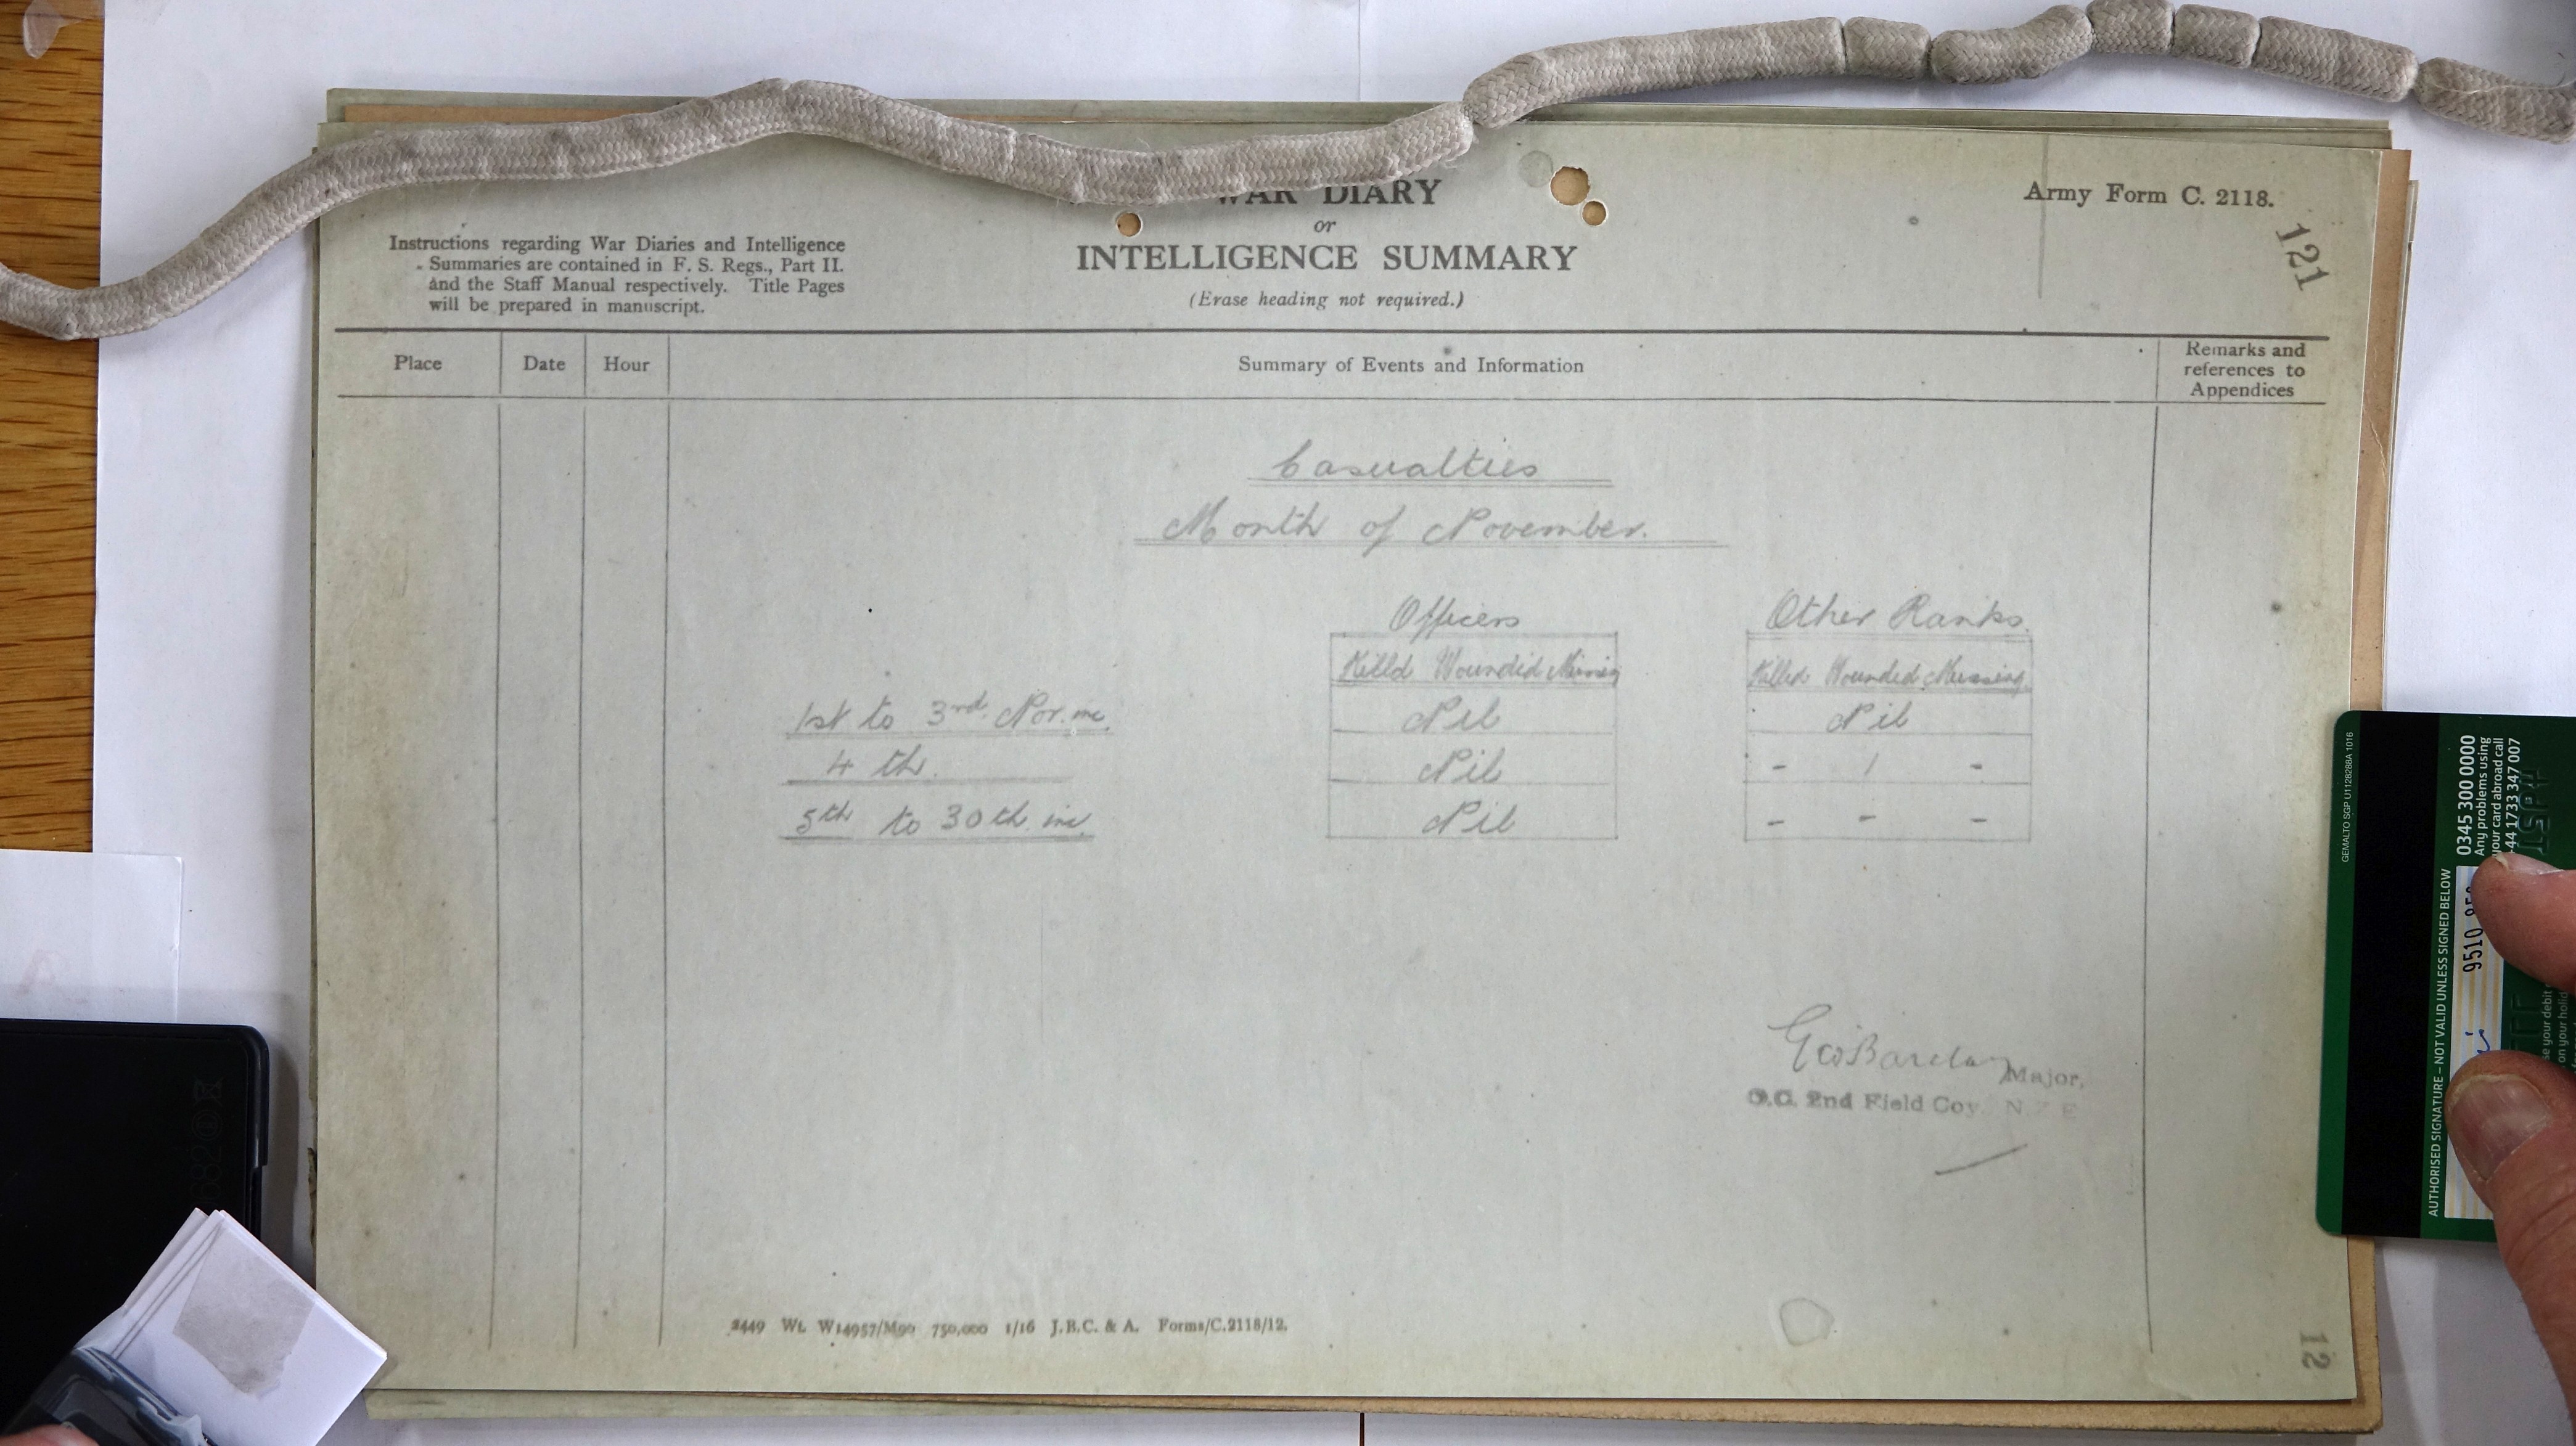 WAR DIARY
or
INTELLIGENCE SUMMARY
(Erase heading not required.)
Army Form C. 2118.
121
Instructions regarding War Diaries and Intelligence
Summaries are contained in F. S. Regs., Part II.
and the Staff Manual respectively. Title Pages
will be prepared in manuscript.
Place Date Hour Summary of Events and Information Remarks and
references to
Appendices
Casualties
Month of November.
Officers Other Ranks.
Killd Wounded Missing Killed Wounded Missing
1st to 3rd Nov. inc. Nil Nil
4th. Nil - 1 -
5th to 30th inc. Nil - - -
Barclay Major,
O.C. 2nd Field Coy N Z E
2449 Wt. W14957/M90 750,000 1/16 J.B.C. & A. Forms/C.2118/12.
12
GEMALTO SGP U1128288A 1016
0345 300 0000
Any problems using
your card abroad call
+44 1733 347 007
AUTHORISED SIGNATURE – NOT VALID UNLESS SIGNED BELOW
9510